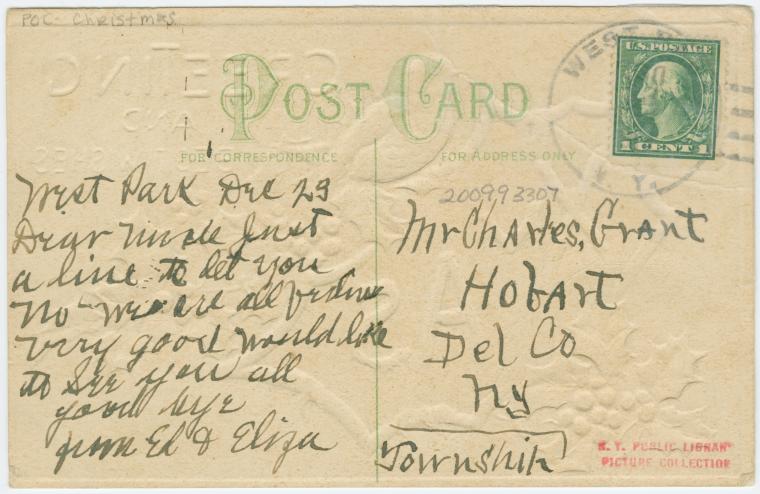 POC-Christmas
POST CARD
FOR CORRESPONDENCE
FOR ADDRESS ONLY
WEST
N. Y.
U.S. POSTAGE
1 CENT 1
200993307
West Park Dec 29
Dear Uncle Just
a line to let you
No We are all
very good would like
to See you all
good bye
from Ed & Eliza
Mr Charles, Grant
Hobart
Del Co
Ny
Township
N. Y. PUBLIC LIBRARY
PICTURE COLLECTION